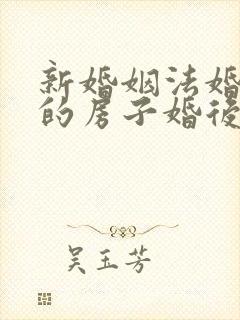 新婚姻法婚
的房子婚后
吴玉芳